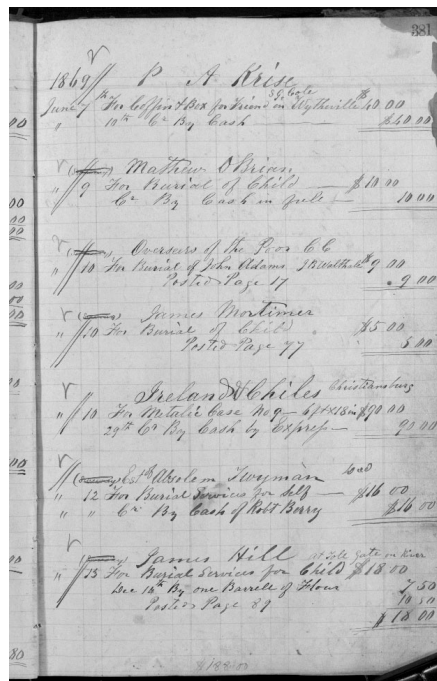 381
1869 P A Krise
June 7th For Coffin & Box for Friend in Wytheville $40 00
" 10th Cr By Cash — $40.00
Mathew O Brian
" 9 For Burial of Child — $10.00
Cr By Cash in full — 10 00
Overseers of the Poor CC
" 10 For Burial of John Adams $9 00
Posted Page 17 9 00
James Mortimer
" 10 For Burial of Child $5 00
Posted Page 77 5 00
Ireland & Chiles Christiansburg
" 10 For Metalic Case No 9 — 6 ft x 18 in $90 00
29th Cr By Cash by Express — 90 00
Est of Absolem Twyman Cold
" 12 For Burial Services for Self — $16 00
" " Cr By Cash of Robt Berry $16 00
James Hill at Toll Gate on River
" 15 For Burial Services for Child $18.00
Dec 15th By one Barrell of Flour 7 50
Posted Page 89 10 50
$18 00